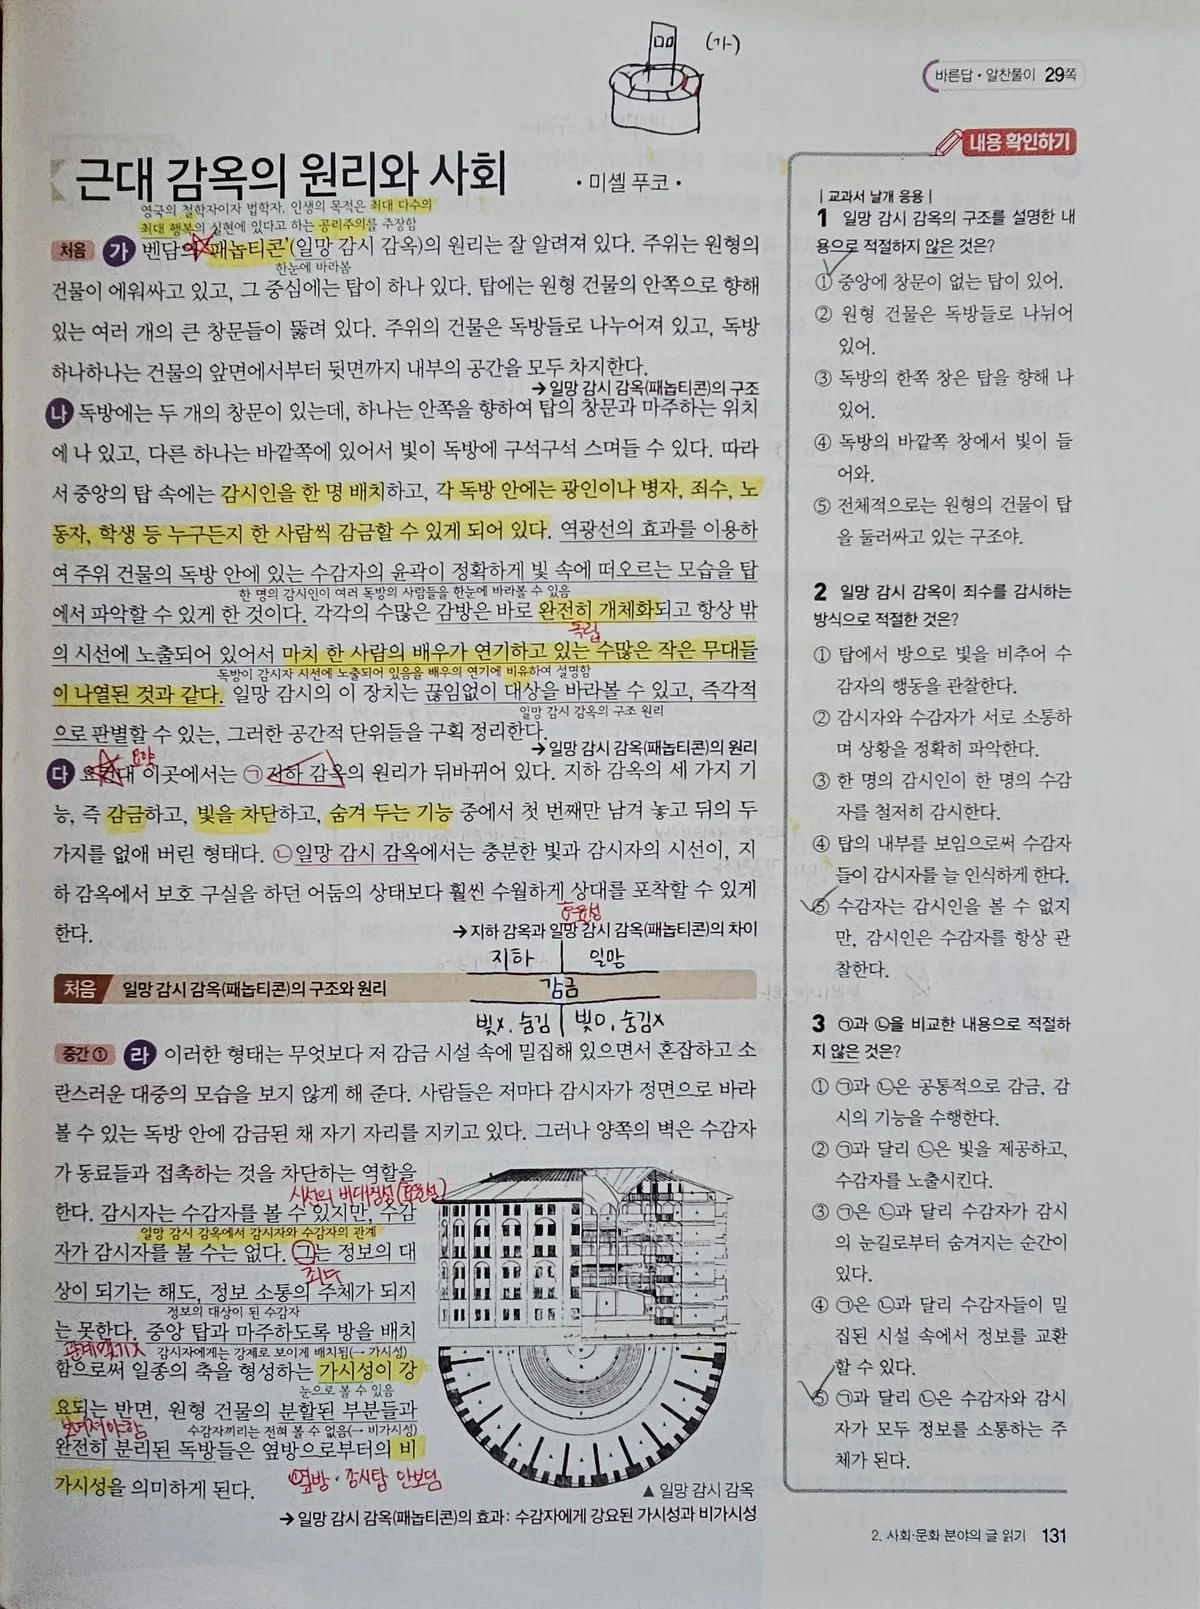 (가)
바른답·알찬풀이 29쪽
근대 감옥의 원리와 사회 ·미셸 푸코·
영국의 철학자이자 법학자. 인생의 목적은 최대 다수의
최대 행복의 실현에 있다고 하는 공리주의를 주장함
처음 가 벤담의 '패놉티콘'(일망 감시 감옥)의 원리는 잘 알려져 있다. 주위는 원형의
한눈에 바라봄
건물이 에워싸고 있고, 그 중심에는 탑이 하나 있다. 탑에는 원형 건물의 안쪽으로 향해
있는 여러 개의 큰 창문들이 뚫려 있다. 주위의 건물은 독방들로 나누어져 있고, 독방
하나하나는 건물의 앞면에서부터 뒷면까지 내부의 공간을 모두 차지한다.
→ 일망 감시 감옥(패놉티콘)의 구조
나 독방에는 두 개의 창문이 있는데, 하나는 안쪽을 향하여 탑의 창문과 마주하는 위치
에 나 있고, 다른 하나는 바깥쪽에 있어서 빛이 독방에 구석구석 스며들 수 있다. 따라
서 중앙의 탑 속에는 감시인을 한 명 배치하고, 각 독방 안에는 광인이나 병자, 죄수, 노
동자, 학생 등 누구든지 한 사람씩 감금할 수 있게 되어 있다. 역광선의 효과를 이용하
여 주위 건물의 독방 안에 있는 수감자의 윤곽이 정확하게 빛 속에 떠오르는 모습을 탑
한 명의 감시인이 여러 독방의 사람들을 한눈에 바라볼 수 있음
에서 파악할 수 있게 한 것이다. 각각의 수많은 감방은 바로 완전히 개체화되고 항상 밖
독립
의 시선에 노출되어 있어서 마치 한 사람의 배우가 연기하고 있는 수많은 작은 무대들
독방이 감시자 시선에 노출되어 있음을 배우의 연기에 비유하여 설명함
이 나열된 것과 같다. 일망 감시의 이 장치는 끊임없이 대상을 바라볼 수 있고, 즉각적
일망 감시 감옥의 구조 원리
으로 판별할 수 있는, 그러한 공간적 단위들을 구획 정리한다.
→ 일망 감시 감옥(패놉티콘)의 원리
요약
다 요컨대 이곳에서는 ㉠지하 감옥의 원리가 뒤바뀌어 있다. 지하 감옥의 세 가지 기
능, 즉 감금하고, 빛을 차단하고, 숨겨 두는 기능 중에서 첫 번째만 남겨 놓고 뒤의 두
가지를 없애 버린 형태다. ㉡일망 감시 감옥에서는 충분한 빛과 감시자의 시선이, 지
하 감옥에서 보호 구실을 하던 어둠의 상태보다 훨씬 수월하게 상대를 포착할 수 있게
효율성
한다.
→ 지하 감옥과 일망 감시 감옥(패놉티콘)의 차이
지하 일망
처음 일망 감시 감옥(패놉티콘)의 구조와 원리
감금
빛X, 숨김 빛O, 숨김X
중간 ① 라 이러한 형태는 무엇보다 저 감금 시설 속에 밀집해 있으면서 혼잡하고 소
란스러운 대중의 모습을 보지 않게 해 준다. 사람들은 저마다 감시자가 정면으로 바라
볼 수 있는 독방 안에 감금된 채 자기 자리를 지키고 있다. 그러나 양쪽의 벽은 수감자
가 동료들과 접촉하는 것을 차단하는 역할을
시선의 비대칭성
한다. 감시자는 수감자를 볼 수 있지만, 수감
일망 감시 감옥에서 감시자와 수감자의 관계
자가 감시자를 볼 수는 없다. 그는 정보의 대
죄수
상이 되기는 해도, 정보 소통의 주체가 되지
정보의 대상이 된 수감자
는 못한다. 중앙 탑과 마주하도록 방을 배치
관계맺기X
감시자에게는 강제로 보이게 배치됨(→ 가시성)
함으로써 일종의 축을 형성하는 가시성이 강
눈으로 볼 수 있음
요되는 반면, 원형 건물의 분할된 부분들과
보여져야함
수감자끼리는 전혀 볼 수 없음(→ 비가시성)
완전히 분리된 독방들은 옆방으로부터의 비
가시성을 의미하게 된다.
옆방·감시탑 안보임
▲ 일망 감시 감옥
→ 일망 감시 감옥(패놉티콘)의 효과: 수감자에게 강요된 가시성과 비가시성
내용 확인하기
| 교과서 날개 응용 |
1 일망 감시 감옥의 구조를 설명한 내
용으로 적절하지 않은 것은?
① 중앙에 창문이 없는 탑이 있어.
② 원형 건물은 독방들로 나뉘어
있어.
③ 독방의 한쪽 창은 탑을 향해 나
있어.
④ 독방의 바깥쪽 창에서 빛이 들
어와.
⑤ 전체적으로는 원형의 건물이 탑
을 둘러싸고 있는 구조야.
2 일망 감시 감옥이 죄수를 감시하는
방식으로 적절한 것은?
① 탑에서 방으로 빛을 비추어 수
감자의 행동을 관찰한다.
② 감시자와 수감자가 서로 소통하
며 상황을 정확히 파악한다.
③ 한 명의 감시인이 한 명의 수감
자를 철저히 감시한다.
④ 탑의 내부를 보임으로써 수감자
들이 감시자를 늘 인식하게 한다.
⑤ 수감자는 감시인을 볼 수 없지
만, 감시인은 수감자를 항상 관
찰한다.
3 ㉠과 ㉡을 비교한 내용으로 적절하
지 않은 것은?
① ㉠과 ㉡은 공통적으로 감금, 감
시의 기능을 수행한다.
② ㉠과 달리 ㉡은 빛을 제공하고,
수감자를 노출시킨다.
③ ㉠은 ㉡과 달리 수감자가 감시
의 눈길로부터 숨겨지는 순간이
있다.
④ ㉠은 ㉡과 달리 수감자들이 밀
집된 시설 속에서 정보를 교환
할 수 있다.
⑤ ㉠과 달리 ㉡은 수감자와 감시
자가 모두 정보를 소통하는 주
체가 된다.
2. 사회·문화 분야의 글 읽기 131